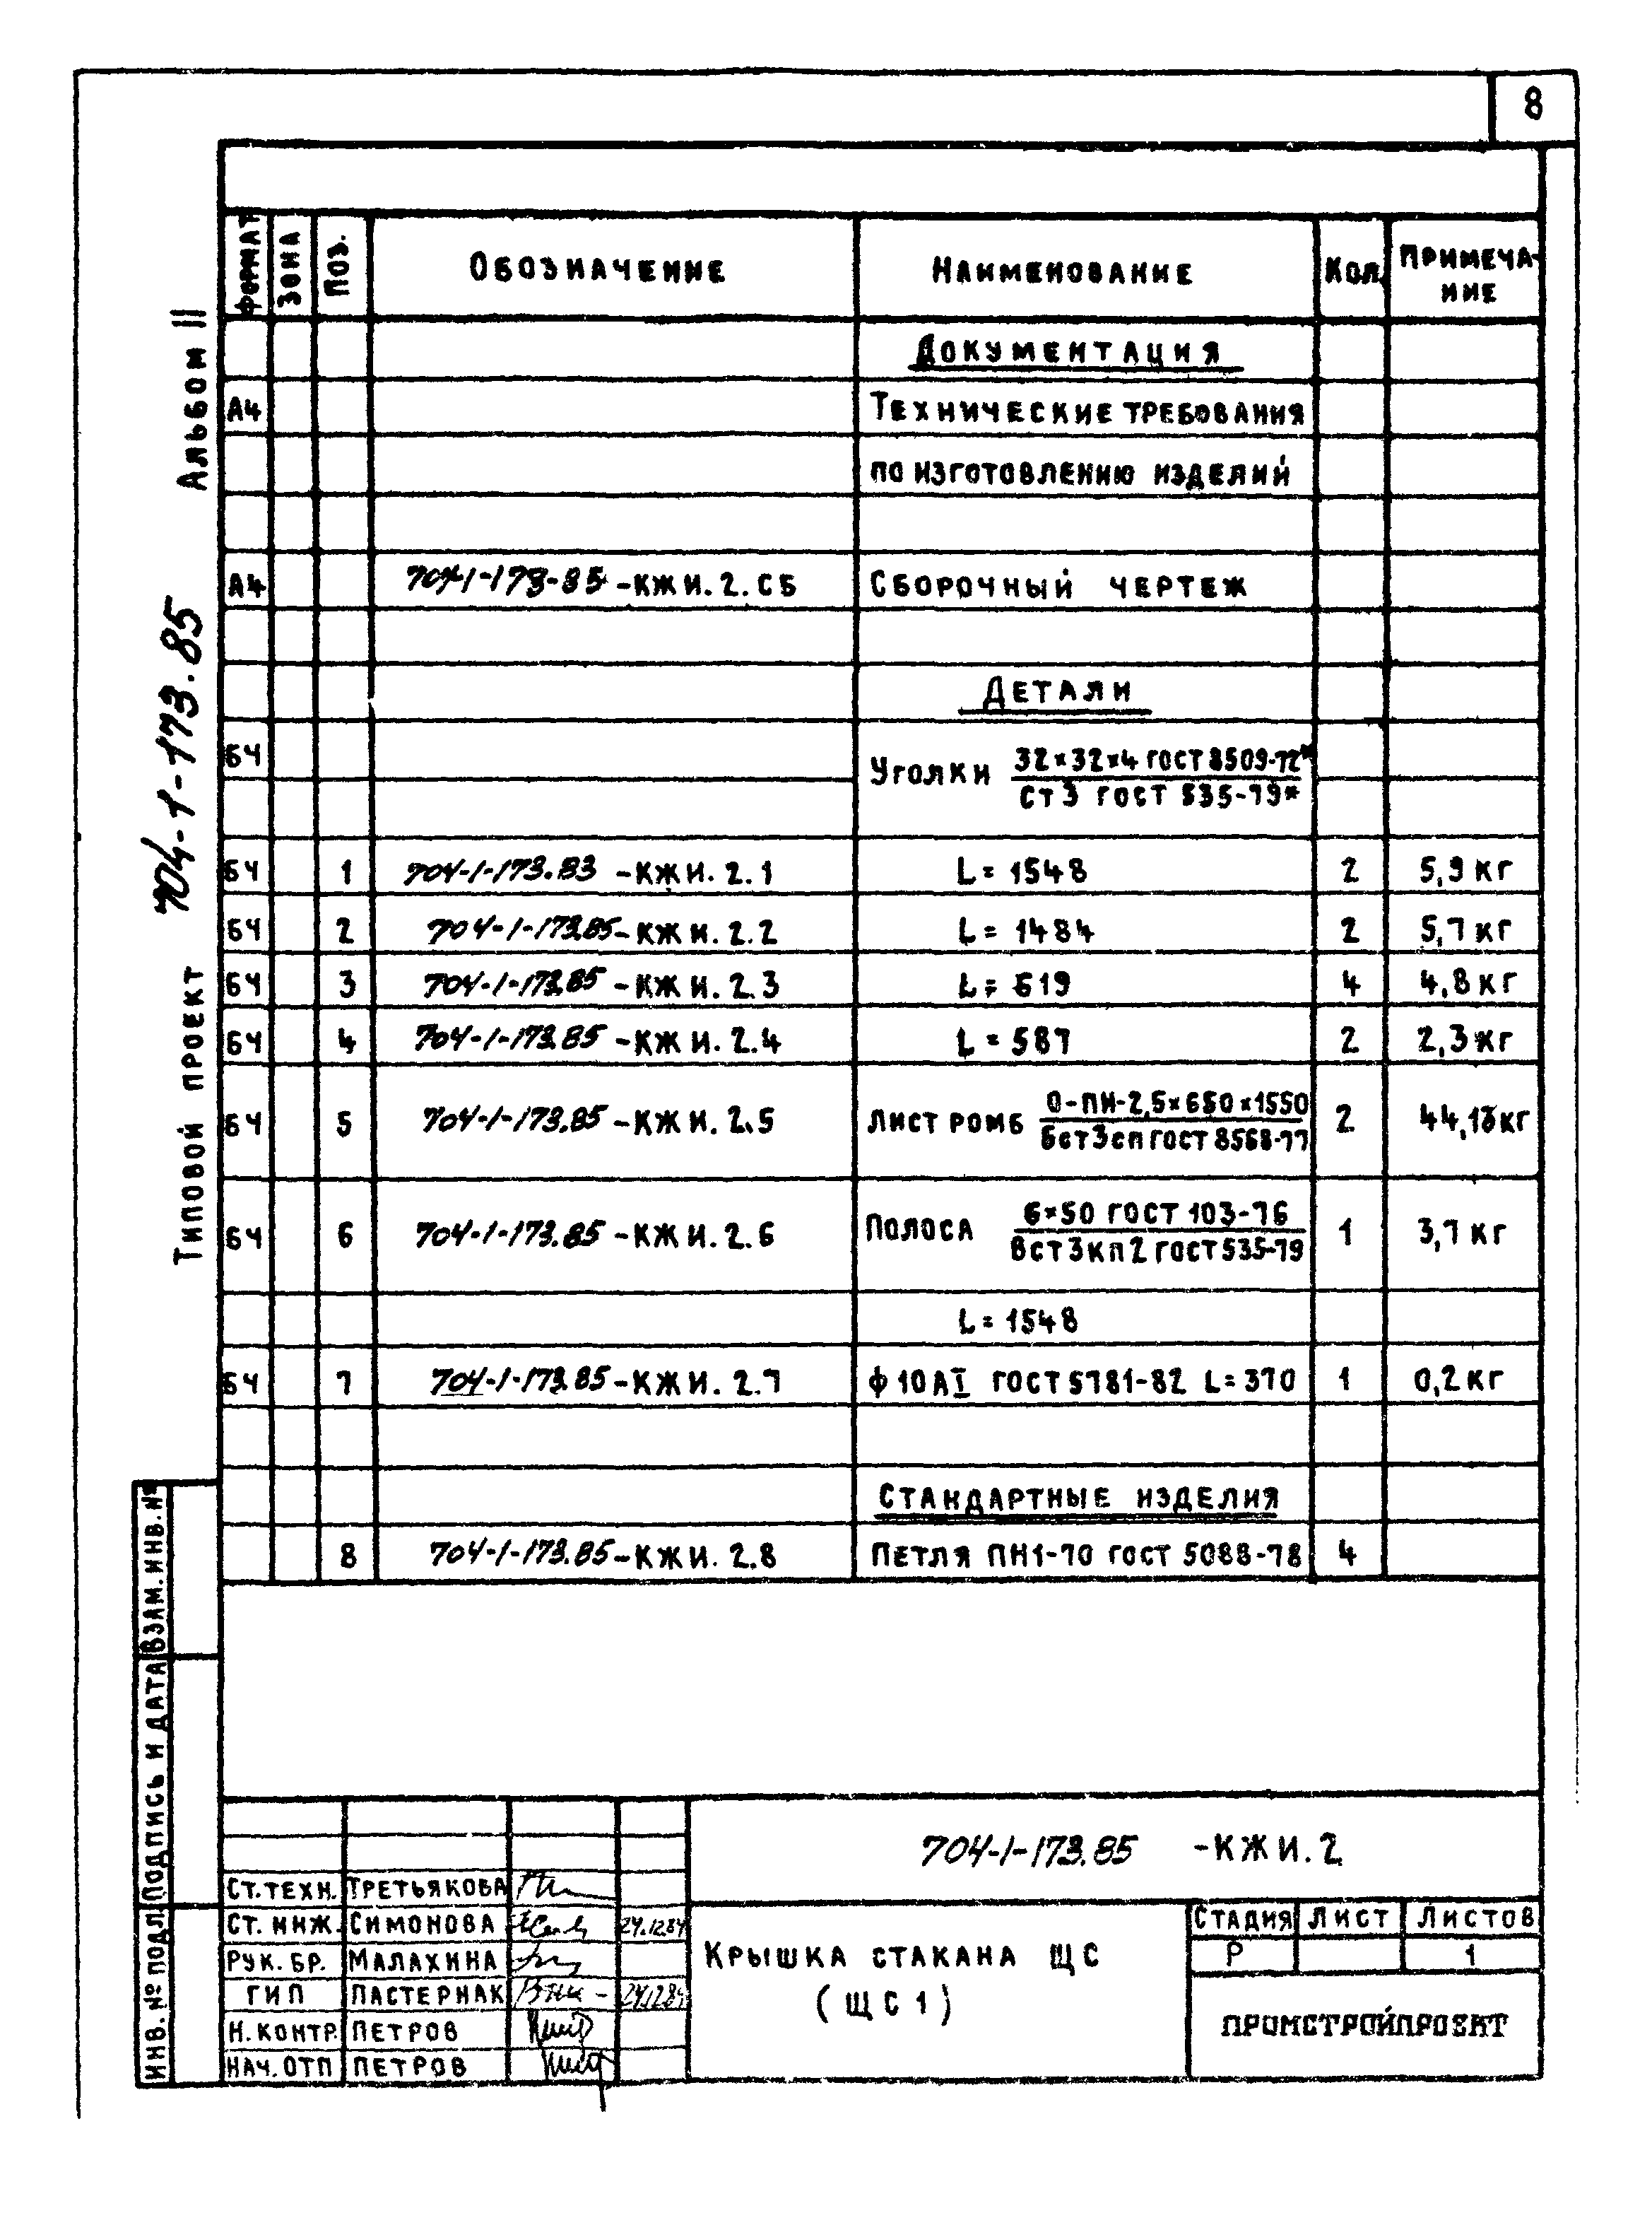 8
Типовой проект 704-1-173.85 Альбом II
Формат Зона Поз. Обозначение Наименование Кол. Примеча-
ние
Документация
А4 Технические требования
по изготовлению изделий
А4 704-1-173-85-КЖИ.2.СБ Сборочный чертеж
Детали
БЧ Уголки 32×32×4 ГОСТ 8509-72*
Ст3 ГОСТ 535-79*
БЧ 1 704-1-173.83 -КЖИ.2.1 L=1548 2 5,9 кг
БЧ 2 704-1-173.85-КЖИ.2.2 L=1484 2 5,7 кг
БЧ 3 704-1-173.85-КЖИ.2.3 L=619 4 4,8 кг
БЧ 4 704-1-173.85-КЖИ.2.4 L=587 2 2,3 кг
БЧ 5 704-1-173.85-КЖИ.2.5 Лист ромб О-ПН-2,5×650×1550 2 44,18 кг
Бст3сп ГОСТ 8568-77
БЧ 6 704-1-173.85-КЖИ.2.6 Полоса 6×50 ГОСТ 103-76 1 3,7 кг
Вст3кп2 ГОСТ 535-79
L=1548
БЧ 7 704-1-173.85-КЖИ.2.7 ф10АI ГОСТ 5781-82 L=370 1 0,2 кг
Стандартные изделия
8 704-1-173.85-КЖИ.2.8 Петля ПН1-70 ГОСТ 5088-78 4
Взам. инв. №
Подпись и дата
Инв. № подл.
704-1-173.85 -КЖИ.2
Ст.техн. Третьякова
Ст. инж. Симонова 24.12.84
Рук. бр. Малахина
ГИП Пастернак 24.12.84
Н.контр. Петров
Нач.отп Петров
Крышка стакана ЩС
(ЩС1)
Стадия Лист Листов
Р 1
ПРОМСТРОЙПРОЕКТ